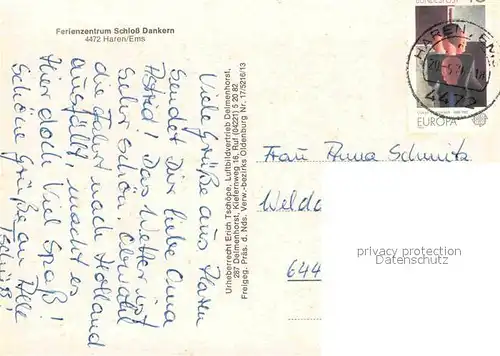 Ferienzentrum Schloß Dankern
4472 Haren/Ems
Viele Grüße aus Haren
sendet Dir liebe Oma
Astrid! Das Wetter ist
sehr schön. Obwohl
die Fahrt nach Holland
ausfällt, macht es
hier doch viel Spaß!
Schöne Grüße an Alle
Tschüß!
Urheberrecht Erich Tschöpe, Luftbildvertrieb Delmenhorst,
287 Delmenhorst, Kiefernweg 16, Ruf (04221) 5 20 82
Freigeg. Präs. d. Nds. Verw.-bezirks Oldenburg Nr. 17/5216/13
HAREN, E
4472
EUROPA
Frau Anna Schmitz
Weldc
644
privacy protection
oldthing.com